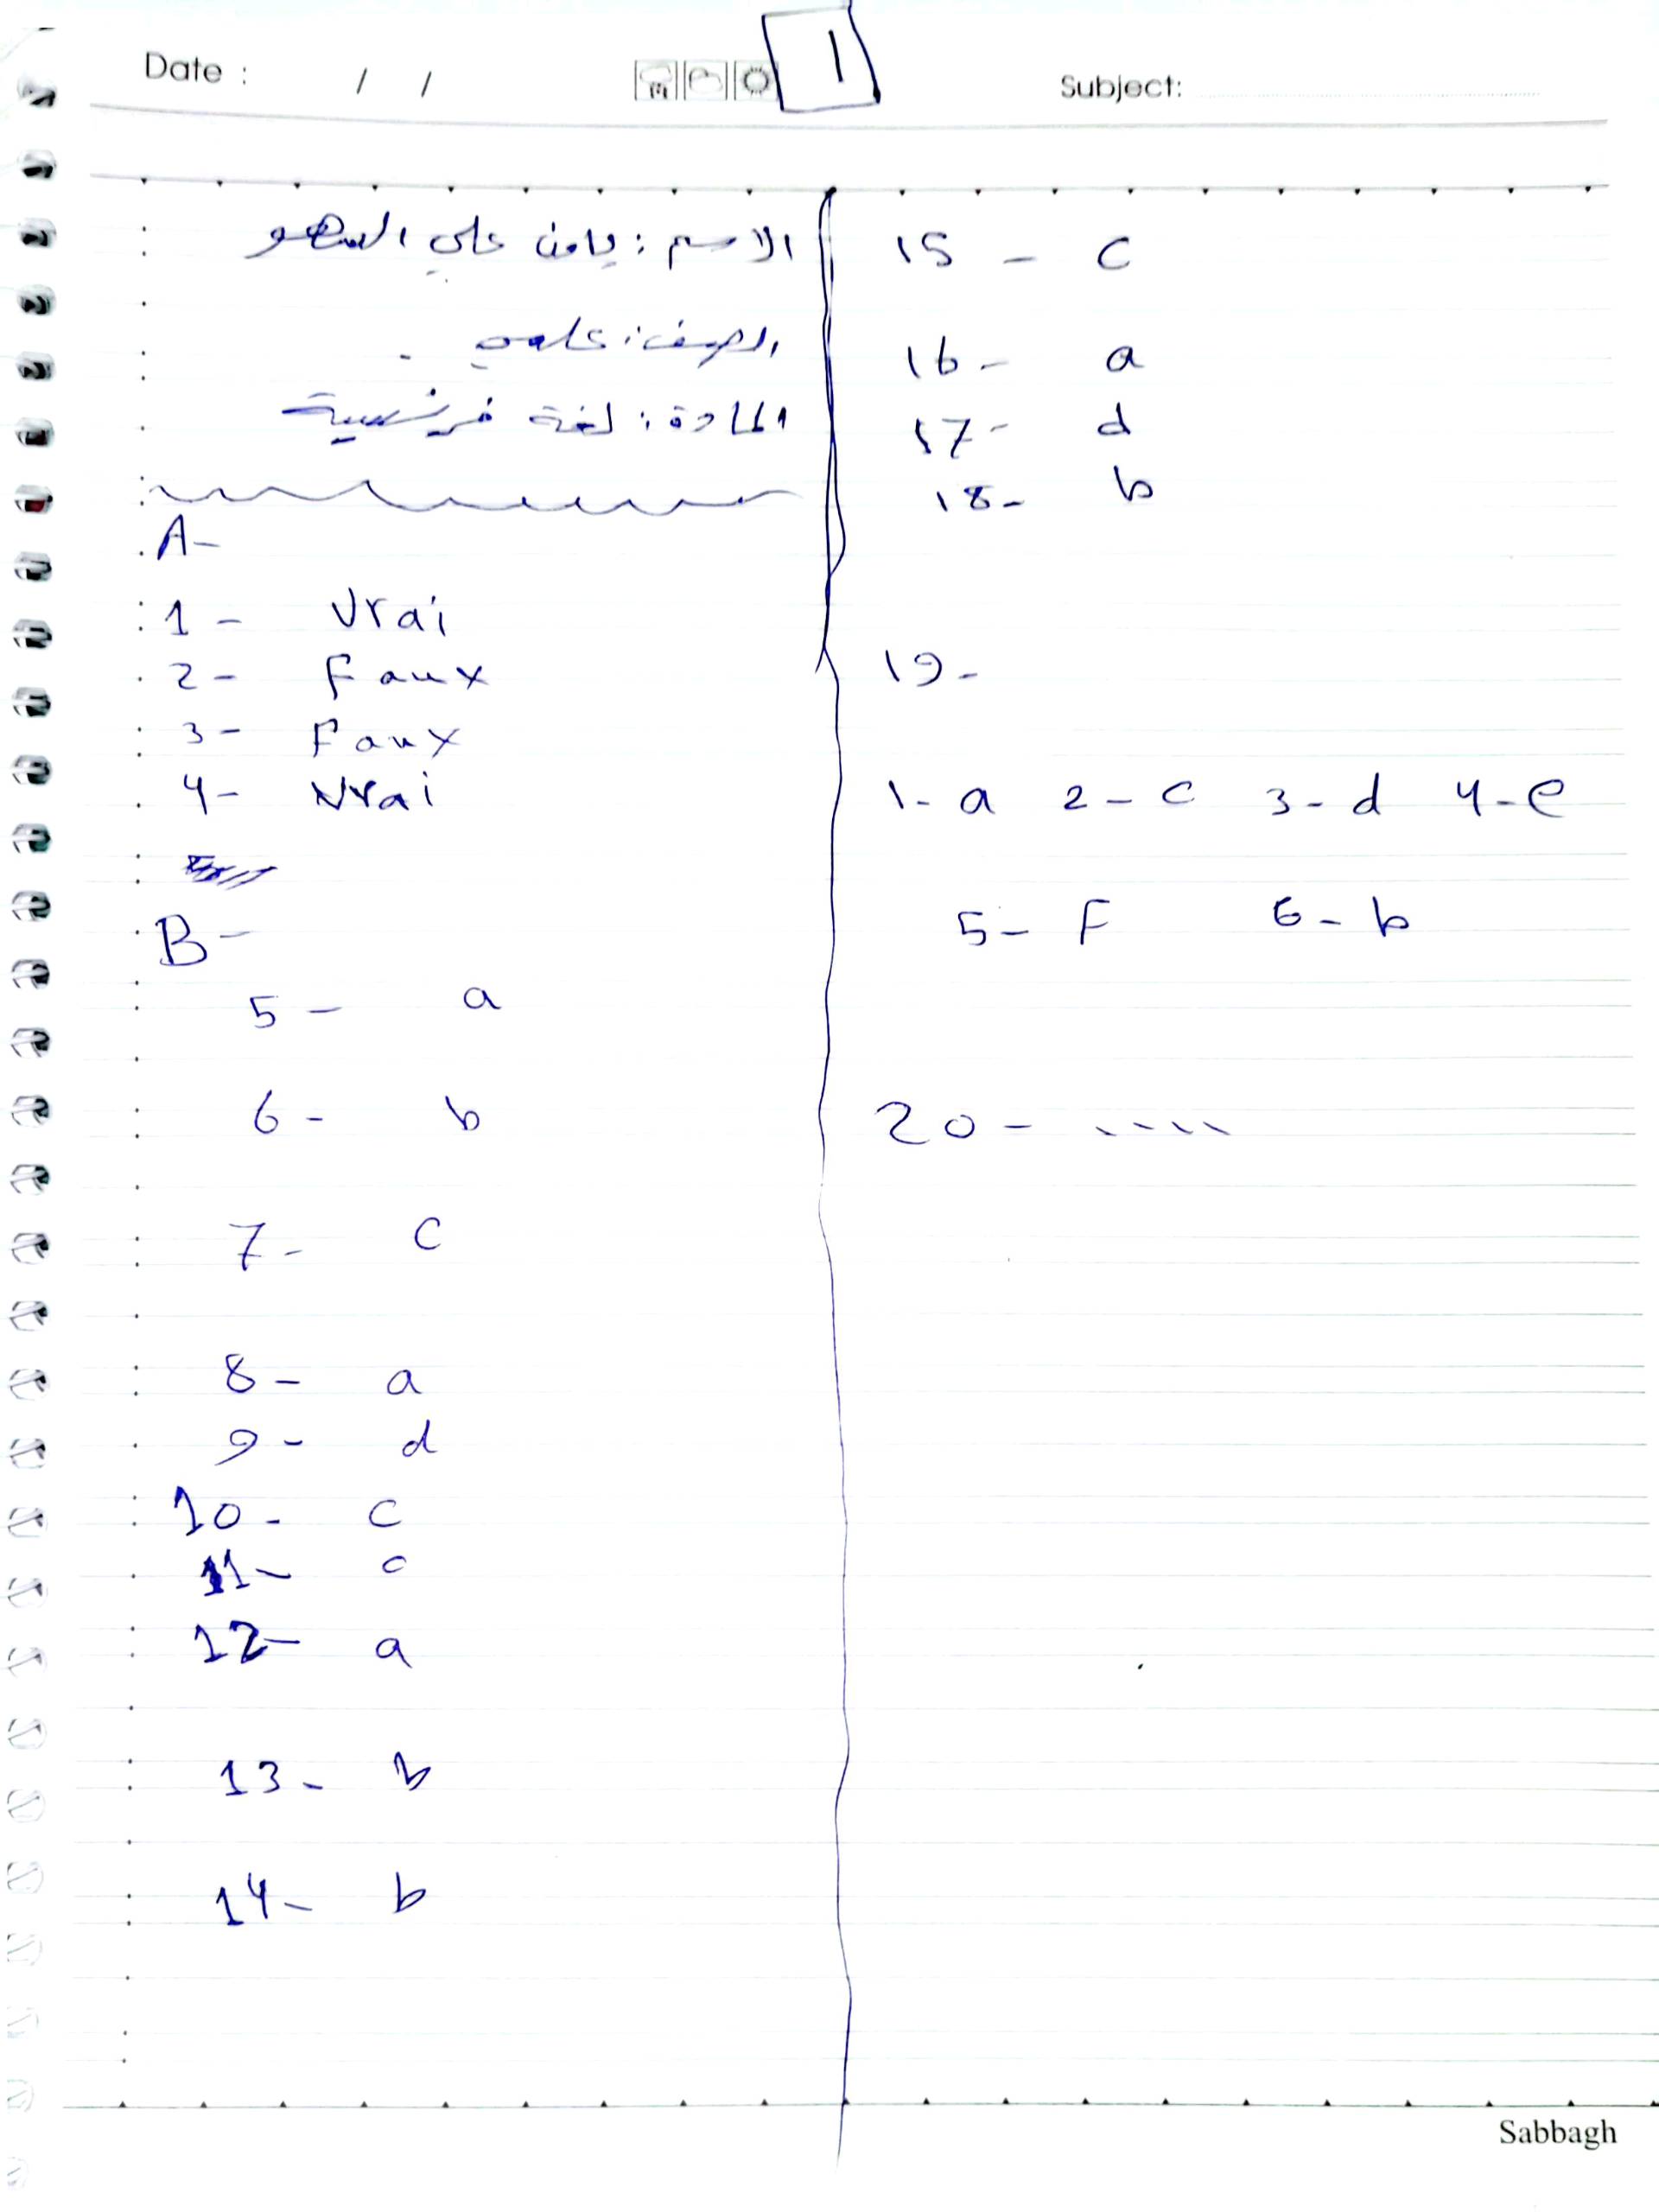 Date : / /
1
Subject:
الاسم : يامن علي السهو
الصف : علمي .
المادة : لغة فرنسية
A-
1 - Vrai
2 - Faux
3 - Faux
4 - Vrai
B-
5 - a
6 - b
7 - c
8 - a
9 - d
10 - c
11 - c
12 - a
13 - b
14 - b
15 - c
16 - a
17 - d
18 - b
19 -
1- a 2 - c 3 - d 4 - e
5 - F 6 - b
20 - ....
Sabbagh